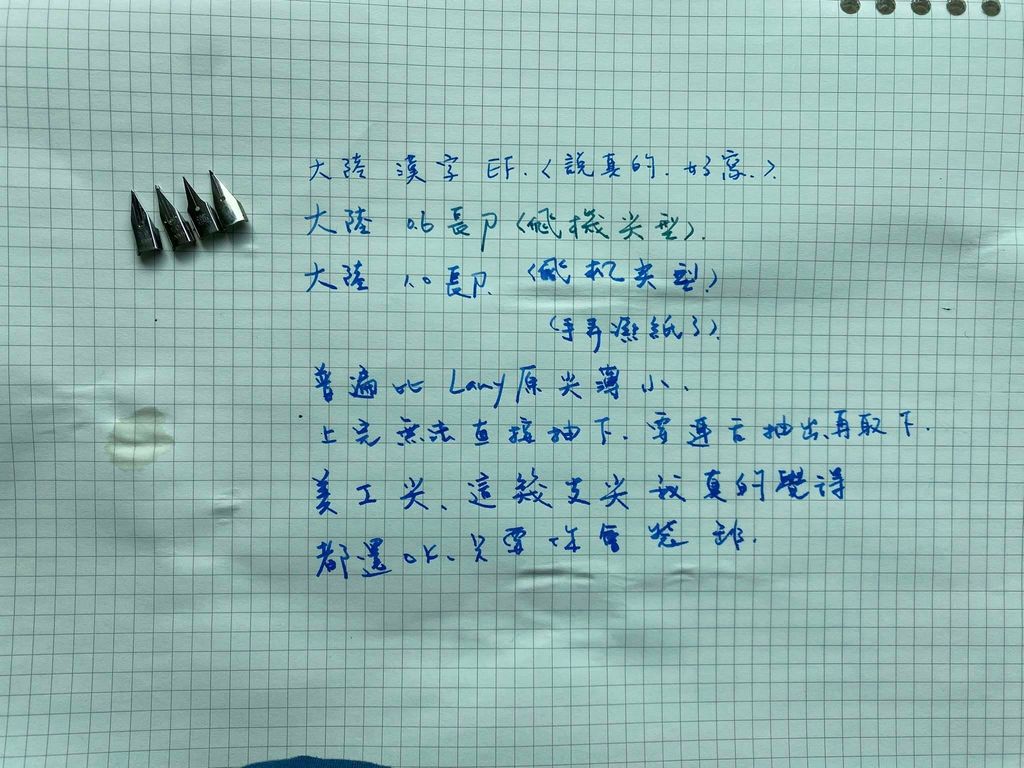 大陸 漢字 EF.(說真的.好寫.).
大陸 0.6 長尸(飛機尖型).
大陸 1.0 長尸.(飛机尖型)
(手弄濕紙了).
普遍比 Lamy原尖薄小.
上完無法直接抽下.要連舌抽出再取下.
美工尖、這幾支尖我真的覺得
都還OK、只要你會裝卸.